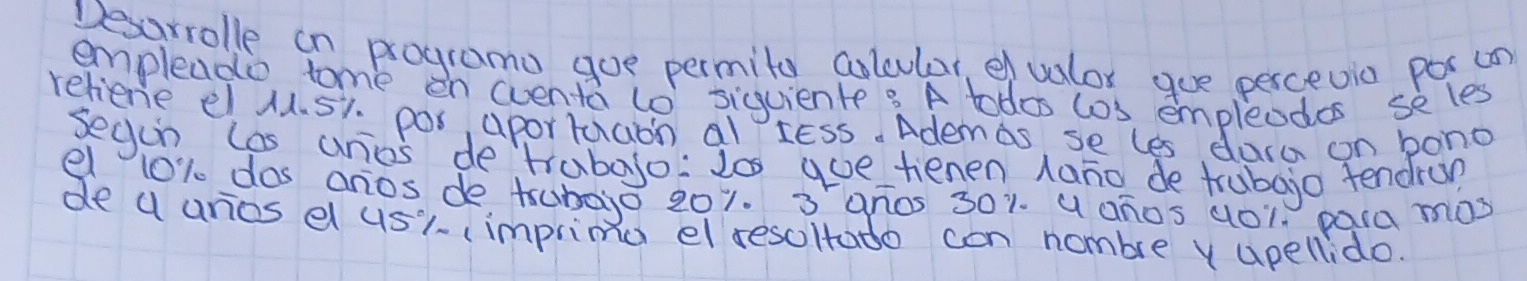 Desarrolle un programa que permita calcular, el valor que percevia por un
empleado tome en cuenta lo siguiente: A todos los empleados se les
retiene el 11.5%. por aportación al IESS. Ademas se les dara un bono
según los años de trabajo: los que tienen 1 año de trabajo tendran
el 10% dos años de trabajo 20%. 3 años 30%. 4 años 40%. para mas
de 4 años el 45%, imprima el resultado con nombre y apellido.